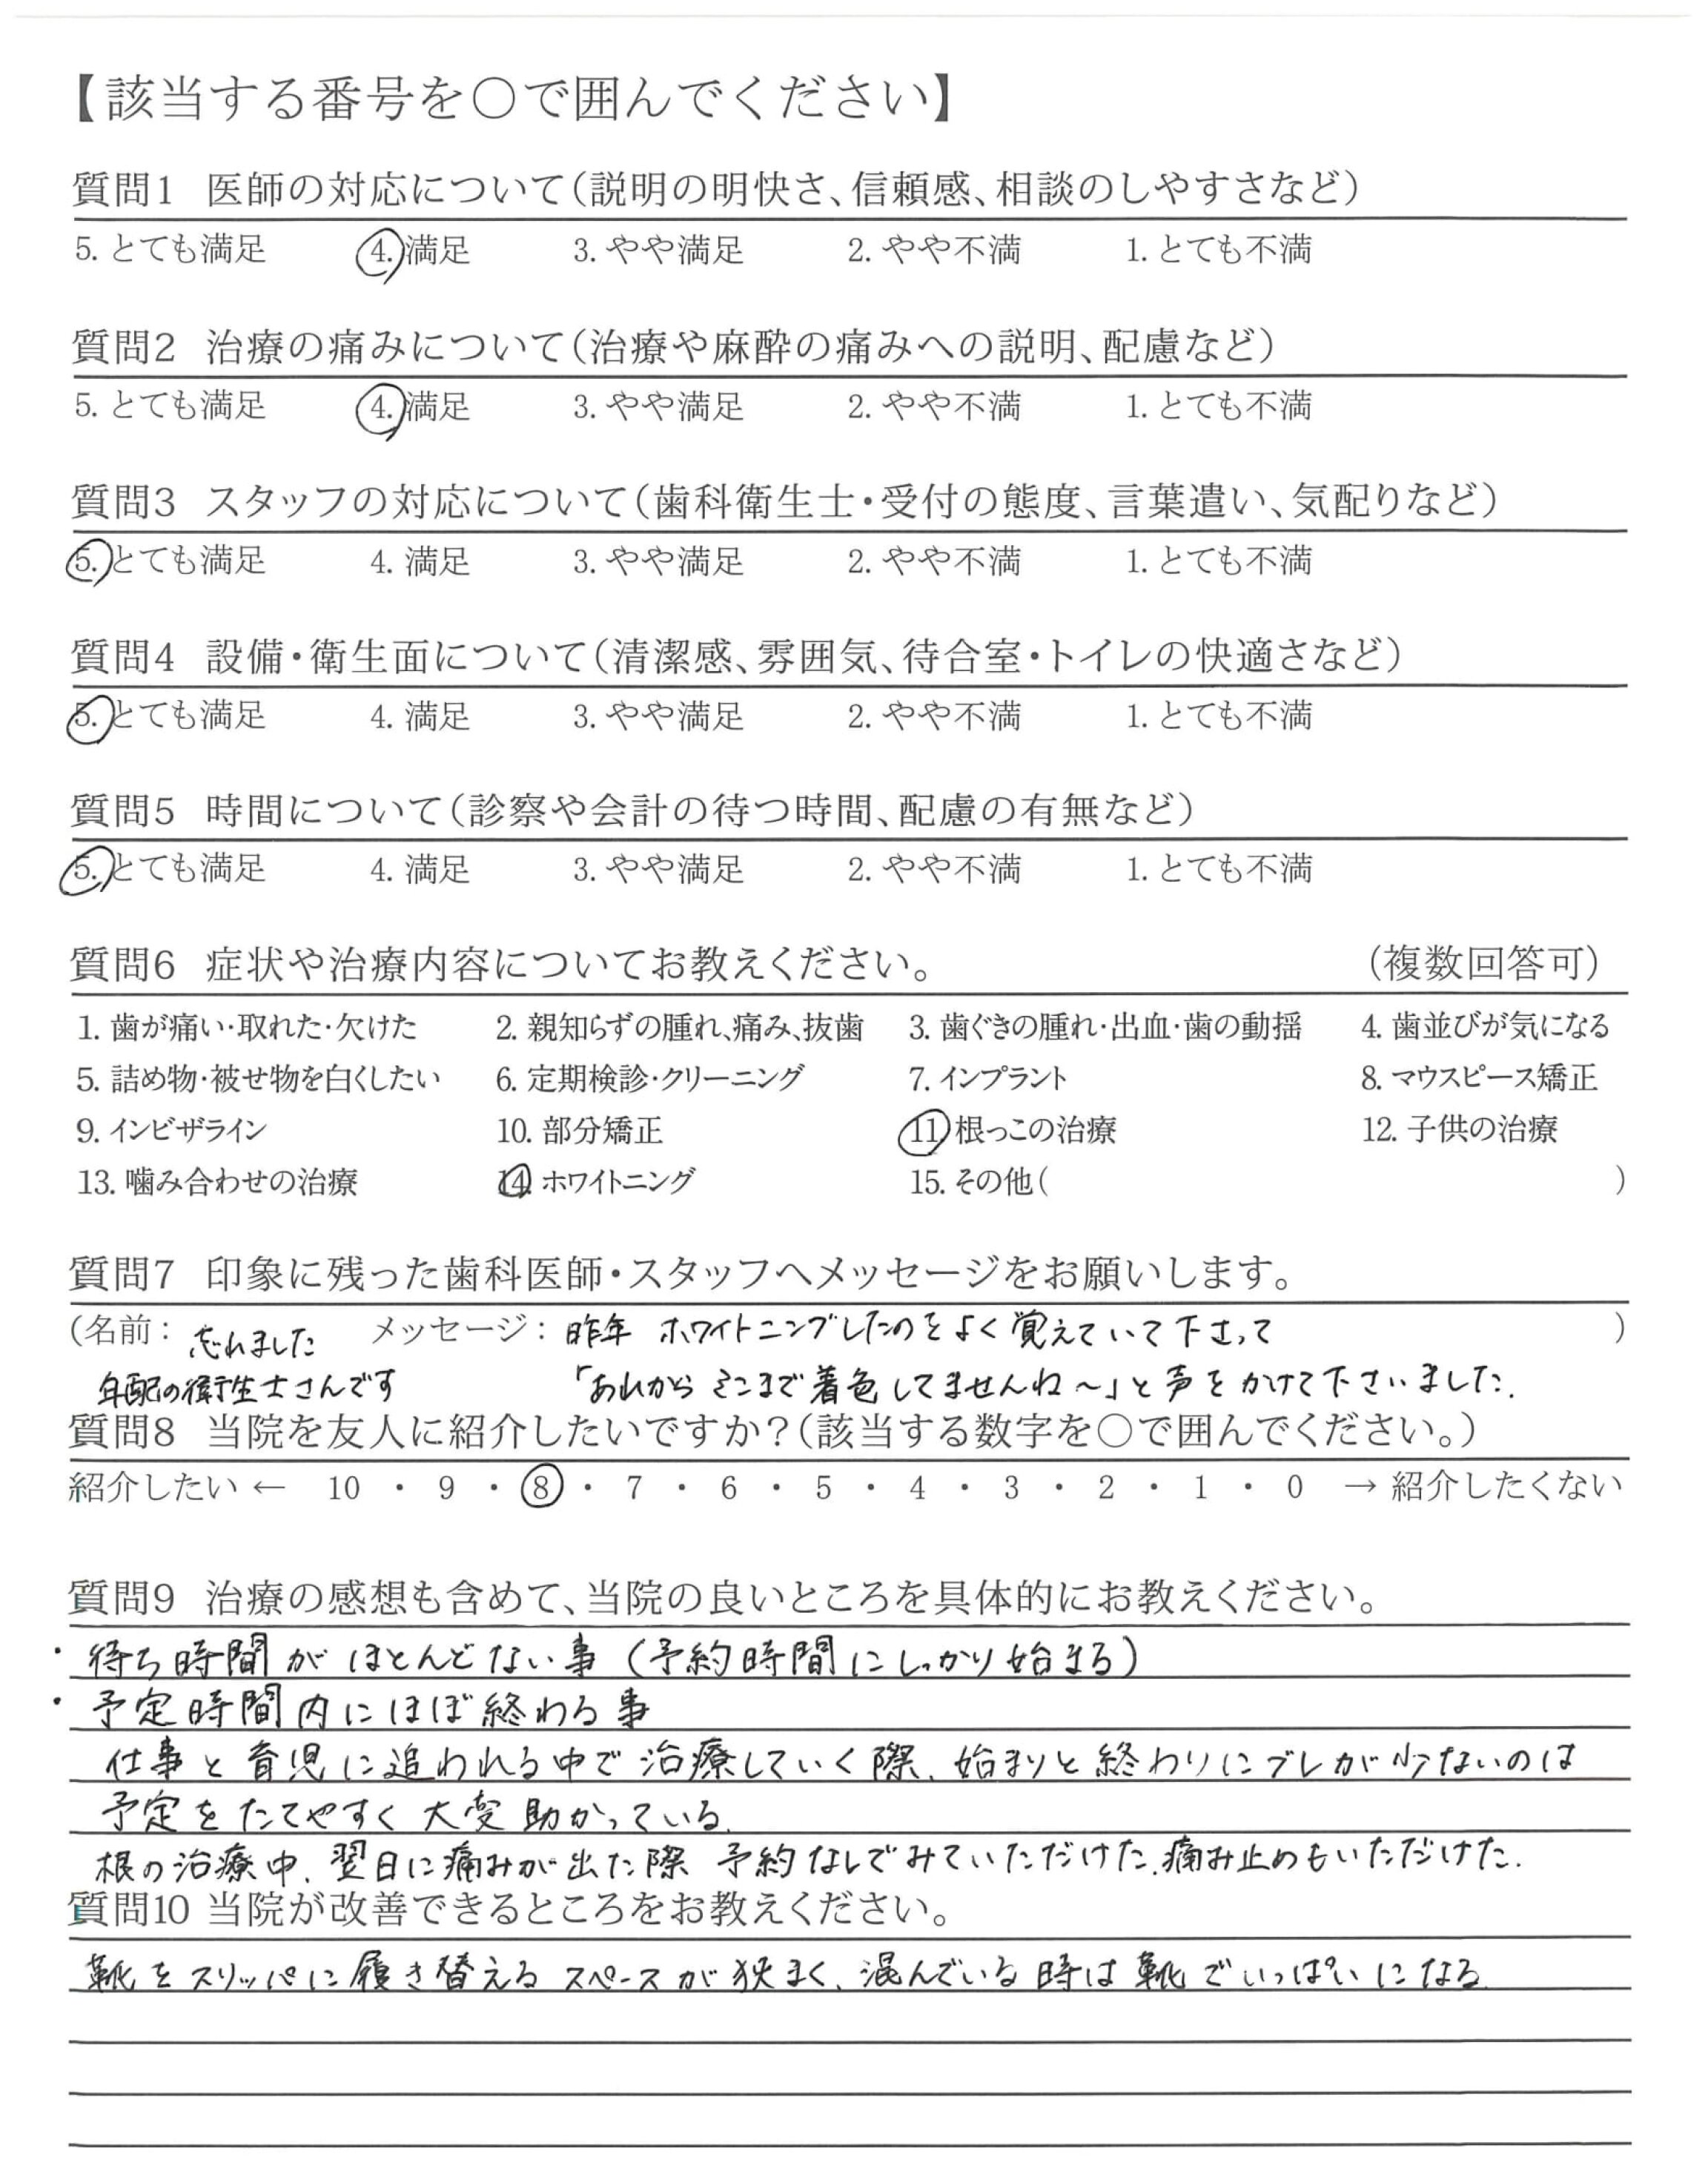 【該当する番号を〇で囲んでください】
質問1 医師の対応について（説明の明快さ、信頼感、相談のしやすさなど）
5. とても満足 4. 満足 3. やや満足 2. やや不満 1. とても不満
質問2 治療の痛みについて（治療や麻酔の痛みへの説明、配慮など）
5. とても満足 4. 満足 3. やや満足 2. やや不満 1. とても不満
質問3 スタッフの対応について（歯科衛生士・受付の態度、言葉遣い、気配りなど）
5. とても満足 4. 満足 3. やや満足 2. やや不満 1. とても不満
質問4 設備・衛生面について（清潔感、雰囲気、待合室・トイレの快適さなど）
5. とても満足 4. 満足 3. やや満足 2. やや不満 1. とても不満
質問5 時間について（診察や会計の待つ時間、配慮の有無など）
5. とても満足 4. 満足 3. やや満足 2. やや不満 1. とても不満
質問6 症状や治療内容についてお教えください。 （複数回答可）
1. 歯が痛い・取れた・欠けた 2. 親知らずの腫れ、痛み、抜歯 3. 歯ぐきの腫れ・出血・歯の動揺 4. 歯並びが気になる
5. 詰め物・被せ物を白くしたい 6. 定期検診・クリーニング 7. インプラント 8. マウスピース矯正
9. インビザライン 10. 部分矯正 11. 根っこの治療 12. 子供の治療
13. 噛み合わせの治療 14. ホワイトニング 15. その他（ ）
質問7 印象に残った歯科医師・スタッフへメッセージをお願いします。
（名前： 忘れました メッセージ： 昨年 ホワイトニングしたのをよく覚えていて下さって ）
年配の衛生士さんです 「あれからそこまで着色してませんね〜」と声をかけて下さいました.
質問8 当院を友人に紹介したいですか？（該当する数字を〇で囲んでください。）
紹介したい ← 10 ・ 9 ・ 8 ・ 7 ・ 6 ・ 5 ・ 4 ・ 3 ・ 2 ・ 1 ・ 0 → 紹介したくない
質問9 治療の感想も含めて、当院の良いところを具体的にお教えください。
・待ち時間がほとんどない事（予約時間にしっかり始まる）
・予定時間内にほぼ終わる事
仕事と育児に追われる中で治療していく際、始まりと終わりにブレが少ないのは
予定をたてやすく大変助かっている.
根の治療中、翌日に痛みが出た際 予約なしでみていただけた.痛み止めもいただけた.
質問10 当院が改善できるところをお教えください。
靴をスリッパに履き替えるスペースが狭く、混んでいる時は靴でいっぱいになる.